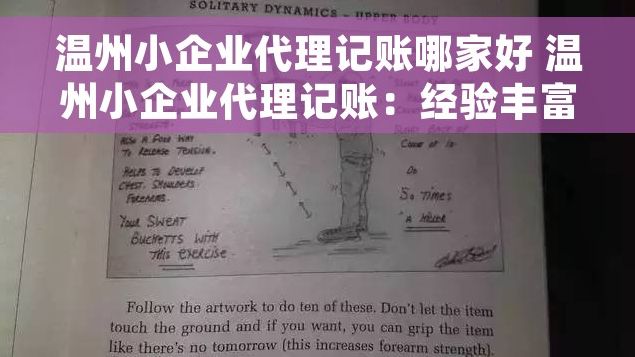 SOLITARY DYNAMICS – UPPER BODY
温州小企业代理记账哪家好 温
州小企业代理记账：经验丰富
ALSO A GOOD WAY
TO RELEASE TENSION.
HELPS TO DEVELOP
CHEST, SHOULDERS
FOREARMS.
YOUR SWEAT
BUCHETTS WITH
THIS EXERCISE.
COUNT OF 10
DO
50 TIMES
"A KILLER"
Follow the artwork to do ten of these. Don't let the item
touch the ground and if you want, you can grip the item
like there's no tomorrow (this increases forearm strength).